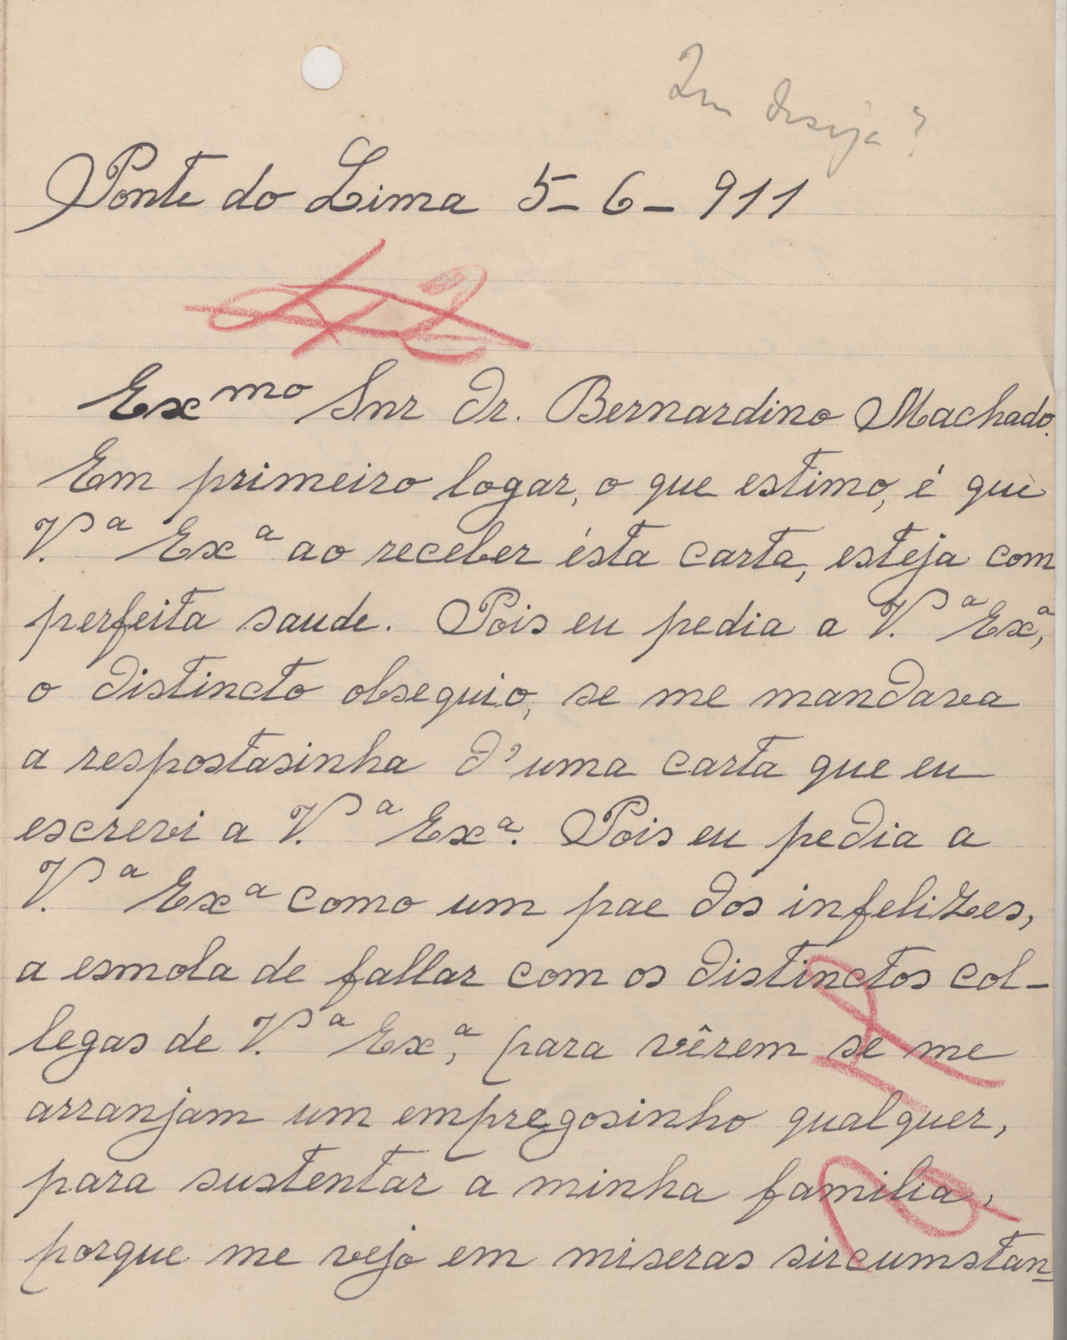 Que deseja?
Ponte do Lima 5-6-911
Exmo Snr Dr. Bernardino Machado.
Em primeiro logar, o que estimo, é que
V.ª Exª ao receber ésta carta, esteja com
perfeita saude. Pois eu pedia a V.ª Exª,
o distincto obsequio, se me mandava
a respostasinha d'uma carta que eu
escrevi a V.ª Exª. Pois eu pedia a
V.ª Exª como um pae dos infelizes,
a esmola de fallar com os distinctos col-
legas de V.ª Exª, para vêrem se me
arranjam um empregosinho qualquer,
para sustentar a minha familia,
porque me vejo em miseras sircumstan-